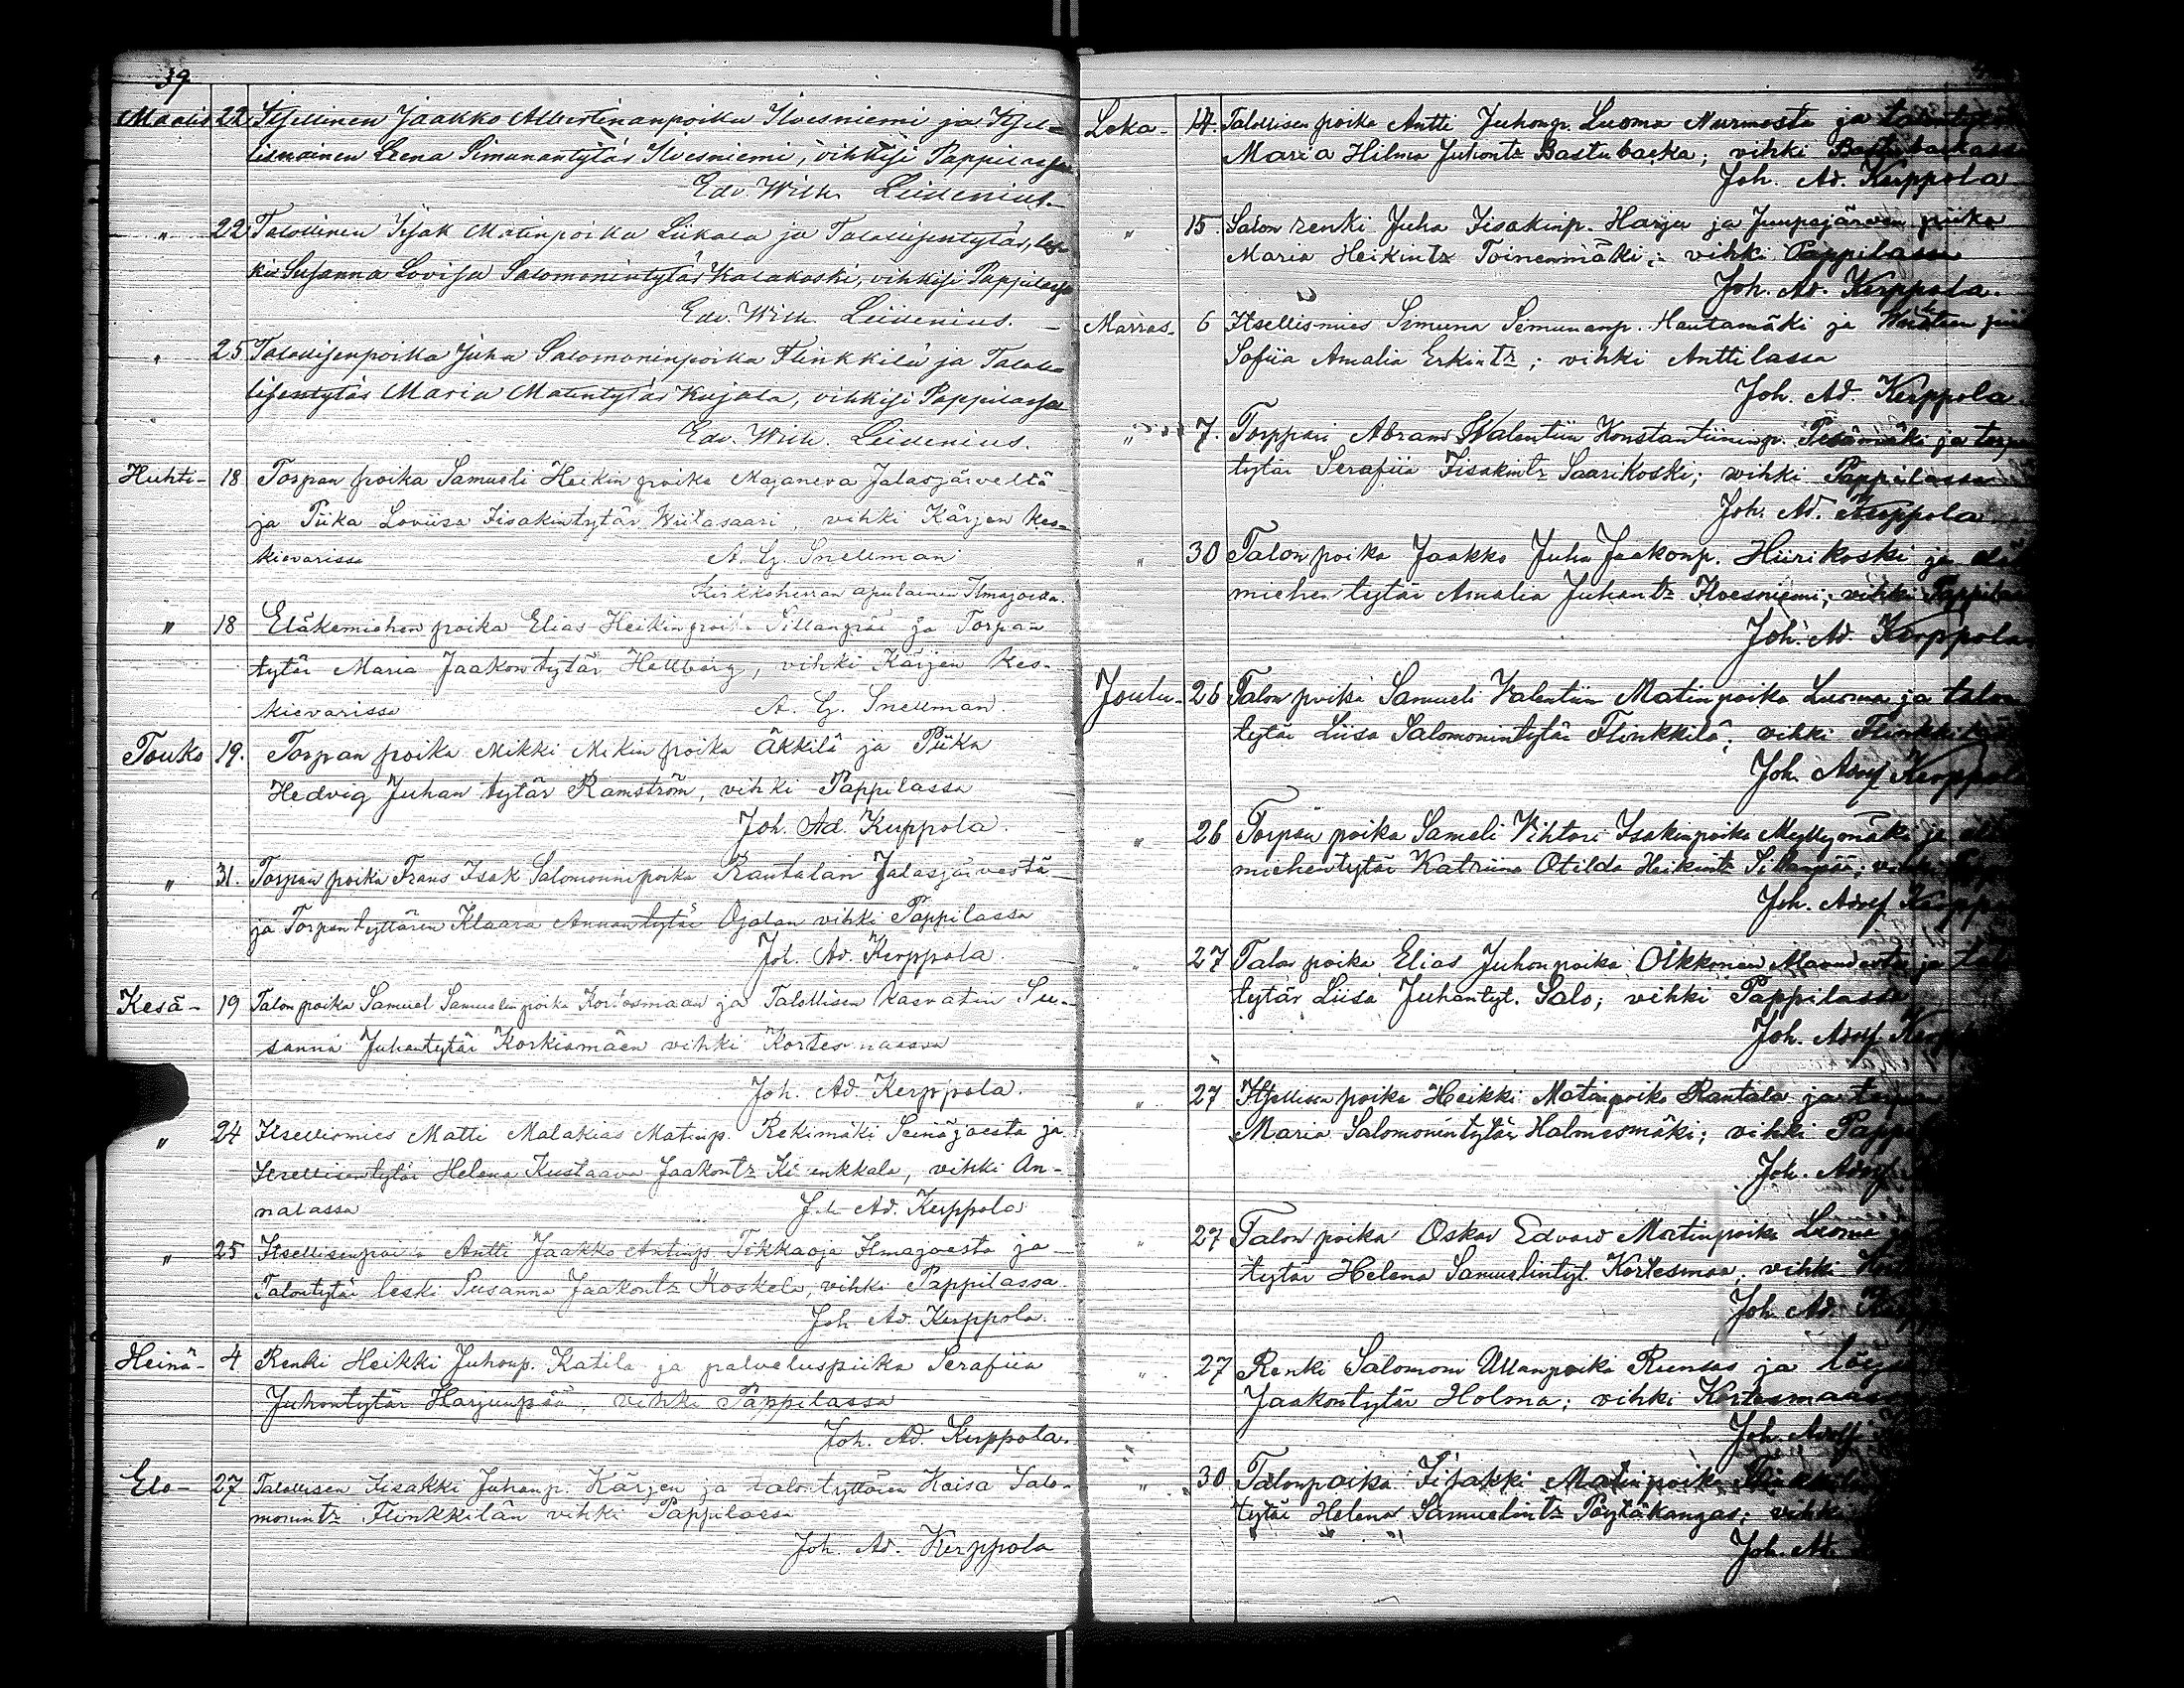 39
Maalis 22 Itsellinen Jaakko Albertinanpoika Ilvesniemi ja Itsel-
lisnainen Leena Simunantytär Ilvesniemi, vihkisi Pappilassa
Edv. Wilh. Leidenius.
" 22 Talollinen Isak Matinpoika Liikala ja Talollisentytär, les-
ki Susanna Lovisa Salomonintytär Kalakoski, vihkisi Pappilassa
Edv. Wilh. Leidenius.
" 25 Talollisenpoika Juha Salomoninpoika Flinkkilä ja Talol-
lisentytär Maria Matintytär Kujala, vihkisi Pappilassa
Edv. Wilh. Leidenius.
Huhti- 18 Torpan poika Samueli Heikin poika Majaneva Jalasjärveltä
ja Piika Loviisa Iisakintytär Wiitasaari, vihki Kärjen Kes-
kievarissa A. G. Snellman
Kirkkoherran apulainen Ilmajoella.
" 18 Eläkemiehen poika Elias Heikinpoika Sillanpää ja Torpan
tytär Maria Jaakontytär Hellberg, vihki Kärjen Kes-
kievarissa A. G. Snellman.
Touko 19. Torpan poika Mikki Mikin poika Äkkilä ja Piika
Hedvig Juhan tytär Ramström, vihki Pappilassa
Joh. Ad. Kerppola.
" 31. Torpan poika Frans Isak Salomoninpoika Rantalan Jalasjärvestä
ja Torpan tyttären Klaara Annantytär Ojalan vihki Pappilassa
Joh. Ad. Kerppola.
Kesä- 19 Talon poika Samuel Samuelin poika Kortesmaan ja Talollisen Kasvatin Su-
sanna Juhantytär Korkiamäen vihki Kortesmaassa
Joh. Ad. Kerppola.
" 24 Itsellismies Matti Malakias Matinp. Rekimäki Seinäjoesta ja
Itsellisentytär Helena Kustaava Jaakontr, vihki An-
nalassa Joh. Ad. Kerppola
" 25 Itsellisenpoika Antti Jaakko Antinp. Tikkaoja Ilmajoesta ja
Talontytär leski Susanna Jaakontr Koskela, vihki Pappilassa
Joh. Ad. Kerppola.
Heinä- 4 Renki Heikki Juhonp. Katila ja palveluspiika Serafiia
Juhontytär Harjunpää, vihki Pappilassa
Joh. Ad. Kerppola.
Elo- 27 Talollisen Iisakki Juhanp. Kärjen ja talontyttären Kaisa Salo-
monintr Flinkkilän vihki Pappilassa
Joh. Ad. Kerppola
Loka- 14. Talollisen poika Antti Juhonp. Luoma Nurmosta ja
Maria Hilma Juhontr Bastubacka; vihki Bastubackassa
Joh. Ad. Kerppola
" 15. Salon renki Juha Iisakinp. Harju ja Juupajärven piika
Maria Heikintr Toinenmäki; vihki Pappilassa
Joh. Ad. Kerppola.
Marras- 6 Itsellismies Simuna Simunanp. Hautamäki ja
Sofiia Amalia Erkintr; vihki Anttilassa
Joh. Ad. Kerppola.
" 7. Torppari Abram Walentiin Konstantiininp. Pesämäki ja
tytär Serafiia Iisakintr Saarikoski; vihki Pappilassa
Joh. Ad. Kerppola
" 30 Talon poika Jaakko Juha Jaakonp. Hiirikoski ja
miehen tytär Amalia Juhantr Ilvesniemi; vihki
Joh. Ad. Kerppola
Joulu- 26 Talon poika Samueli Valentiin Matinpoika Luoma ja talon
tytär Liisa Salomonintytär Flinkkilä; vihki
Joh. Adolf Kerppola
" 26 Torpan poika Sameli Vihtori Isakinpoika Myllymäki ja
miehentytär Katriina Otilda Heikintr Sillanpää;
Joh. Adolf
" 27 Talon poika Elias Juhonpoika Oikkonen ja
tytär Liisa Juhantyt. Salo; vihki Pappilassa
Joh. Adolf
" 27 Itsellisen poika Heikki Matinpoika Rantala ja
Maria Salomonintytär Halmesmäki; vihki
Joh. Adolf
" 27 Talon poika Oskar Edvard Matinpoika Luoma
tytär Helena Samuelintyt. Kortesmaa, vihki
Joh. Ad.
" 27 Renki Salomoni Ullanpoika Runsas ja
Jaakontytär Holma; vihki Kortesmaassa
Joh. Adolf
" 30 Talonpoika Iisakki Matinpoika
tytär Helena Samuelintr Pöytäkangas; vihki
Joh.